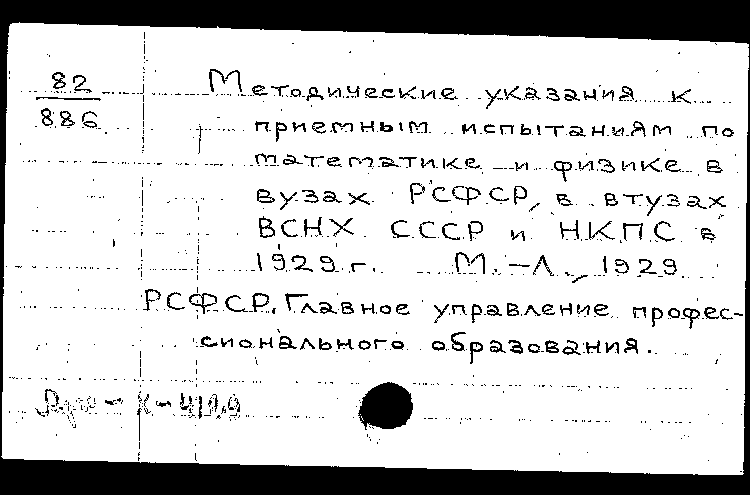 82
886
Методические указания к
приемным испытаниям по
математике и физике в
вузах РСФСР, в втузах
ВСНХ СССР и НКПС в
1929 г. М.-Л., 1929
РСФСР. Главное управление профес-
сионального образования.